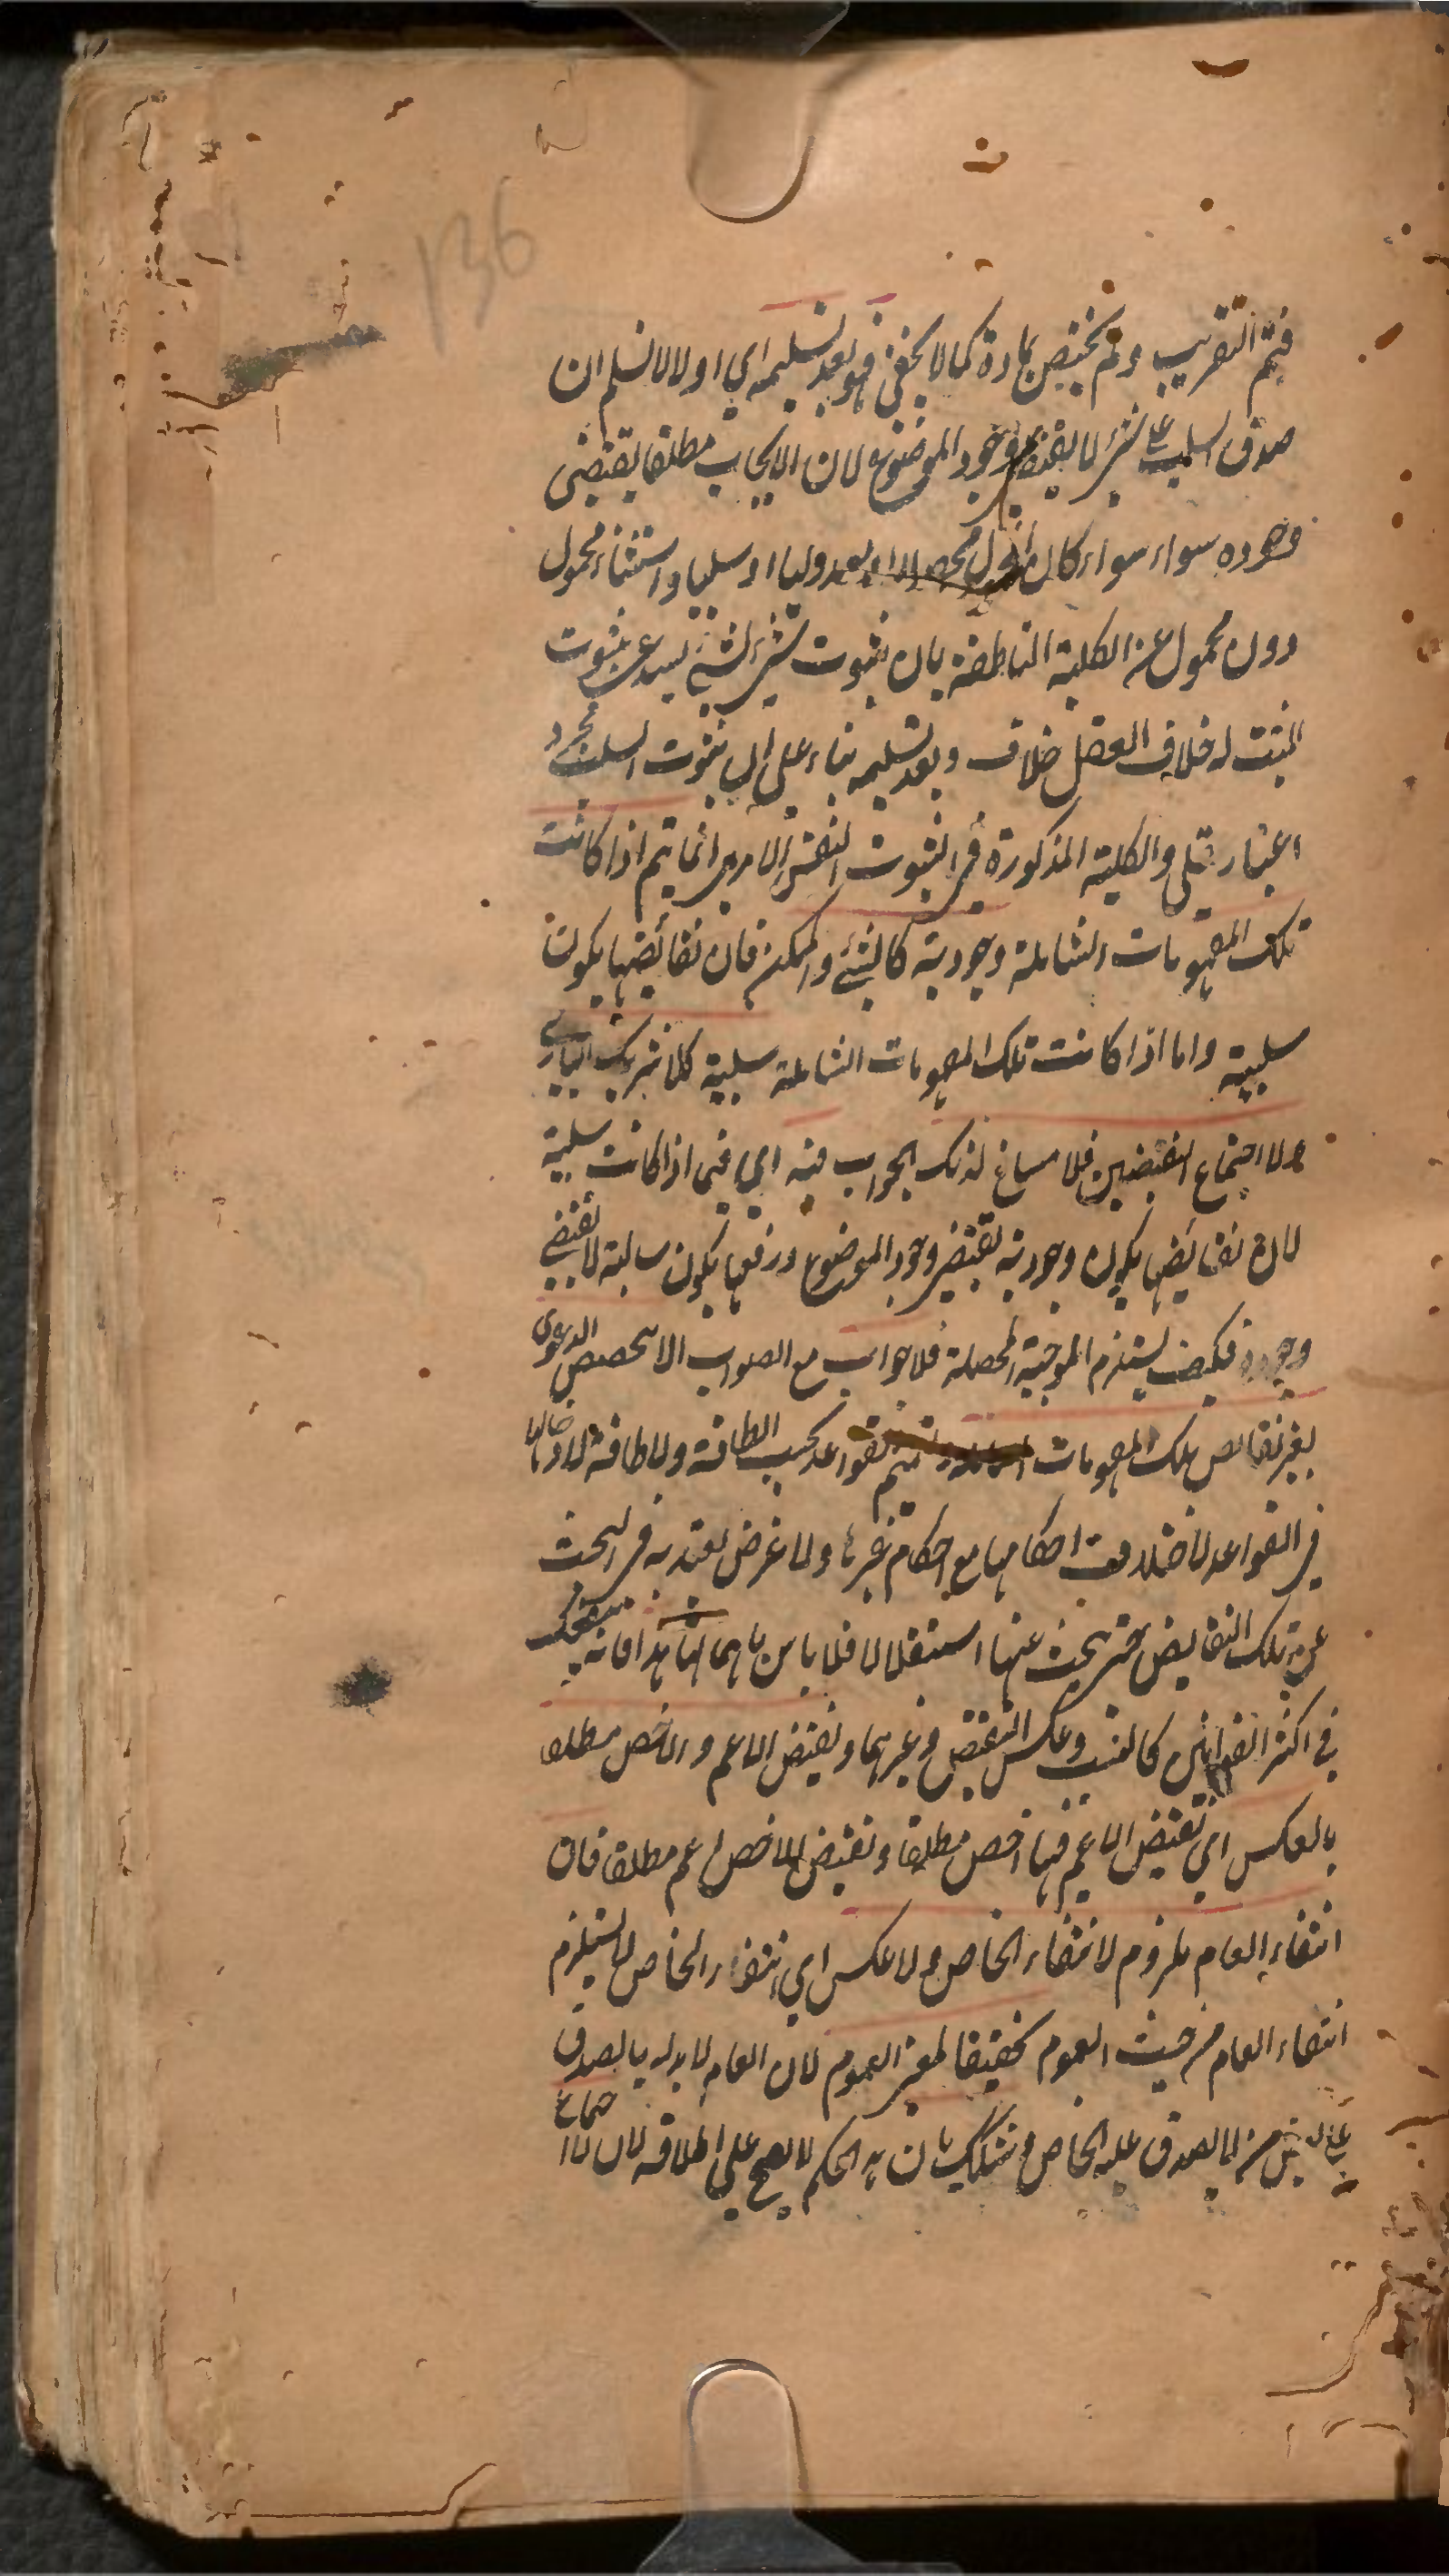 136
فيتم التقريب ولم يختص بمادة كما لا يخفى فهو بعد تسليمه اي اولا لا نسلم ان
صدق السلب على شئ لا يقتضي وجود الموضوع لان الايجاب مطلقا يقتضى
وجوده سواء سواء كان المحمول محصلا او معدوليا او سلبيا واستثناء محمول
دون محمول عن الكلية الناطقة بان ثبوت شئ لشئ يستدعى ثبوت
المثبت له خلاف العقل خلاف وبعد تسليمه بناء على ان ثبوت السلب مجرد
اعتبار عقلي والكلية المذكورة في الثبوت النفس الامرى انما يتم اذا كانت
تلك المفهومات الشاملة وجودية كالشئ والممكن فان نقائضها يكون
سلبية واما اذا كانت تلك المفهومات الشاملة سلبية كلا شريك البارى
ولا اجتماع النقيضين فلا مساغ لذلك الجواب فيه اي في اذا كانت سلبية
لان نقائضها يكون وجودية يقتضي وجود الموضوع ورفعها يكون سالبة لا يقتضي
وجوده فكيف يستلزم الموجبة المحصلة فلا جواب مع الصواب الا تخصيص الدعوى
بغير نقائص تلك المفهومات تعميم القواعد بحسب الطاقة ولا طاقة لادخالها
في القواعد لاختلاف احكامها مع احكام غيرها ولا غرض يعتد به في البحث
عن تلك النقايض حتى يبحث عنها استقلالا فلا باس باهمالها هذا فانه ينفعك
في اكثر القوانين كالنسب وعكس النقيض وغيرهما ونقيض الاعم والاخص مطلقا
بالعكس اي نقيض الاعم فيها اخص مطلقا ونقيض الاخص اعم مطلقا فان
انتفاء العام ملزوم لانتفاء الخاص ولا عكس اي انتفاء الخاص لا يستلزم
انتفاء العام من حيث العموم تحقيقا لمعنى العموم لان العام لا بد له يالصدق
على شئ من لا يصدق عليه الخاص وشكك بان هذا الحكم لا يصح على اطلاقه لان لا اجتماع